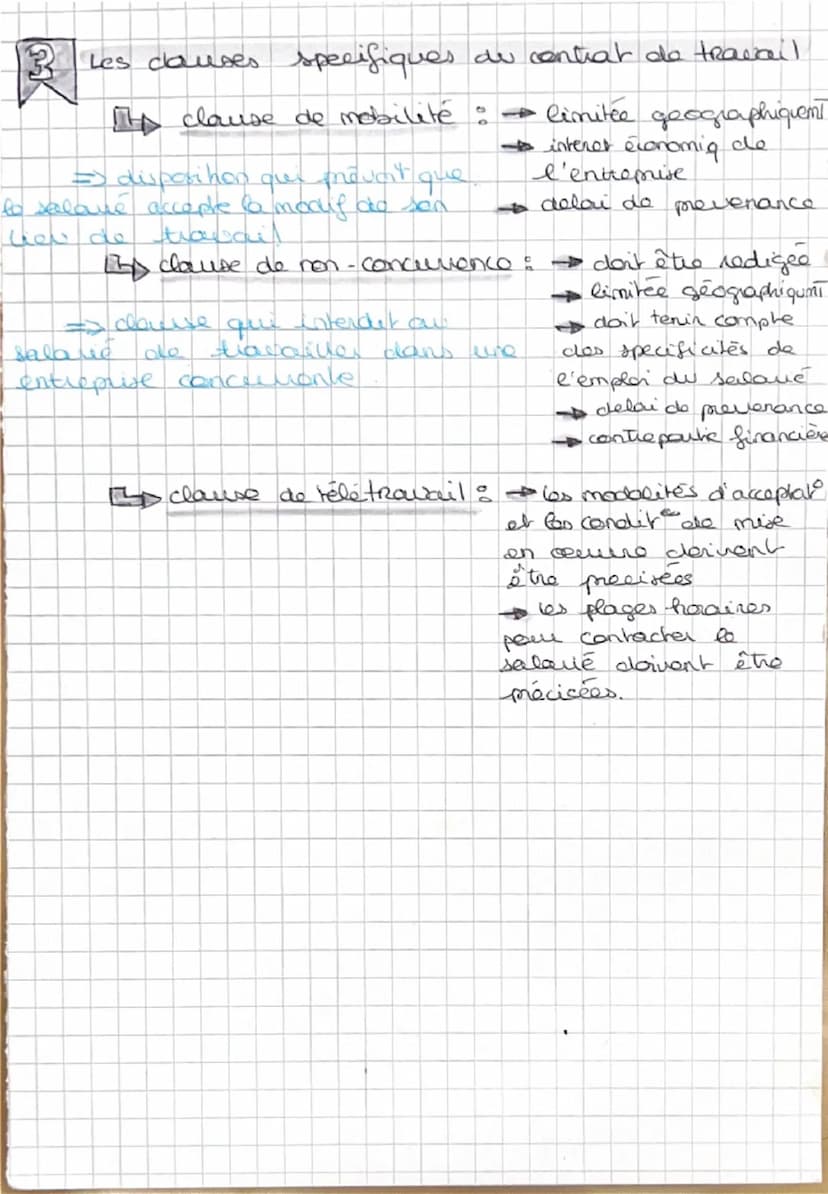 3 Les clauses specifiques du contrat de travail
clause de mobilité : → limitée geographiquemt
→ interet économiq de
l'entreprise
→ delai de prevenance
⇒ disposition qui prévoit que
le salarié accepte la modif de son
lieu de travail
clause de non-concurrence : → doit être redigée
→ limitée géographiqumt
→ doit tenir compte
des specificités de
l'emploi du salarié
→ delai de prevenance
→ contrepartie financière
⇒ clause qui interdit au
salarié de travailler dans une
entreprise concurrente
clause de télétravail : → les modalités d'acceptat°
et les condit° de mise
en oeuvre doivent
être precisées
→ les plages horaires
pour contacter le
salarié doivent être
précicées.